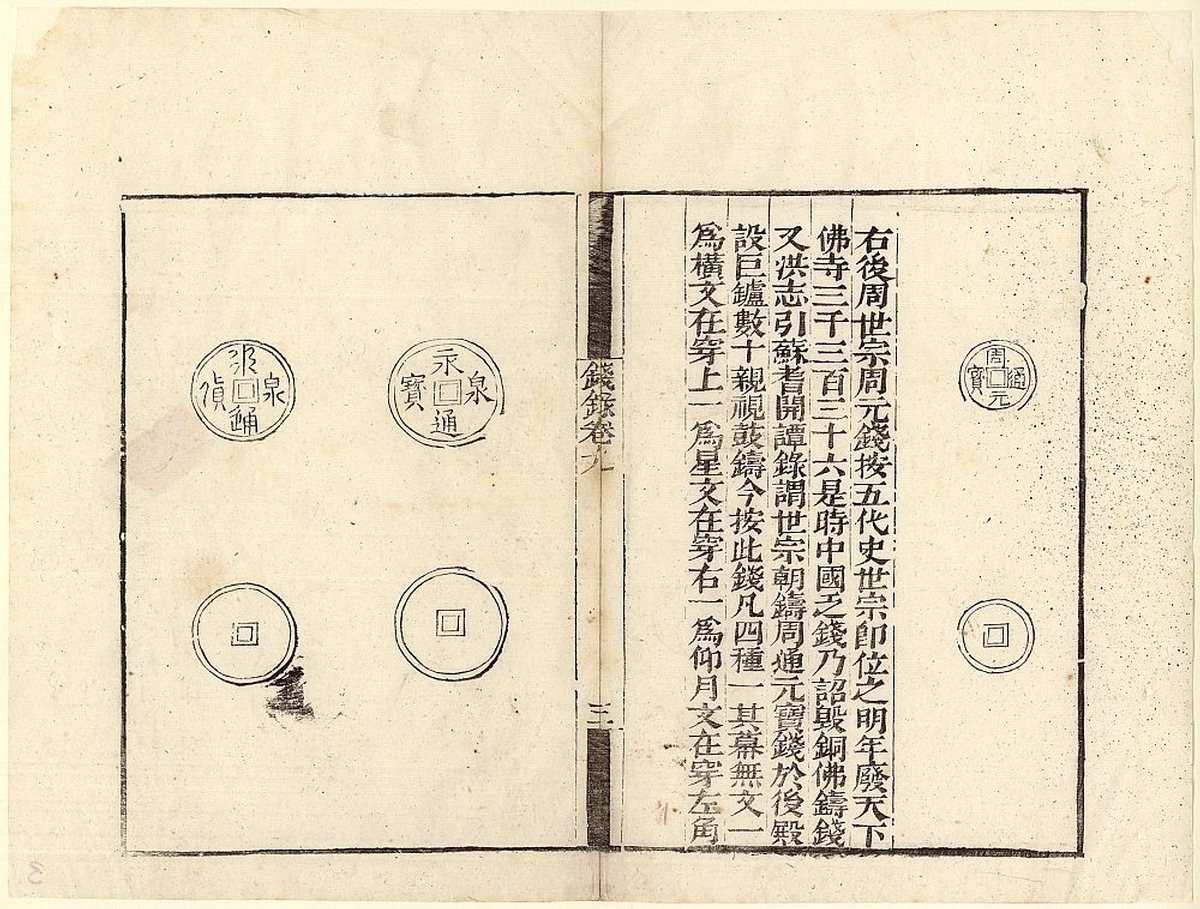 周元通寶
右後周世宗周元錢按五代史世宗即位之明年廢天下
佛寺三千三百三十六是時中國乏錢乃詔毀銅佛鑄錢
又洪志引蘇耆開譚錄謂世宗朝鑄周通元寶錢於後殿
設巨鑪數十親視鼓鑄今按此錢凡四種一其幕無文一
爲橫文在穿上一爲星文在穿右一爲仰月文在穿左角
錢錄卷九
三
永通泉寶
永通泉貨
3